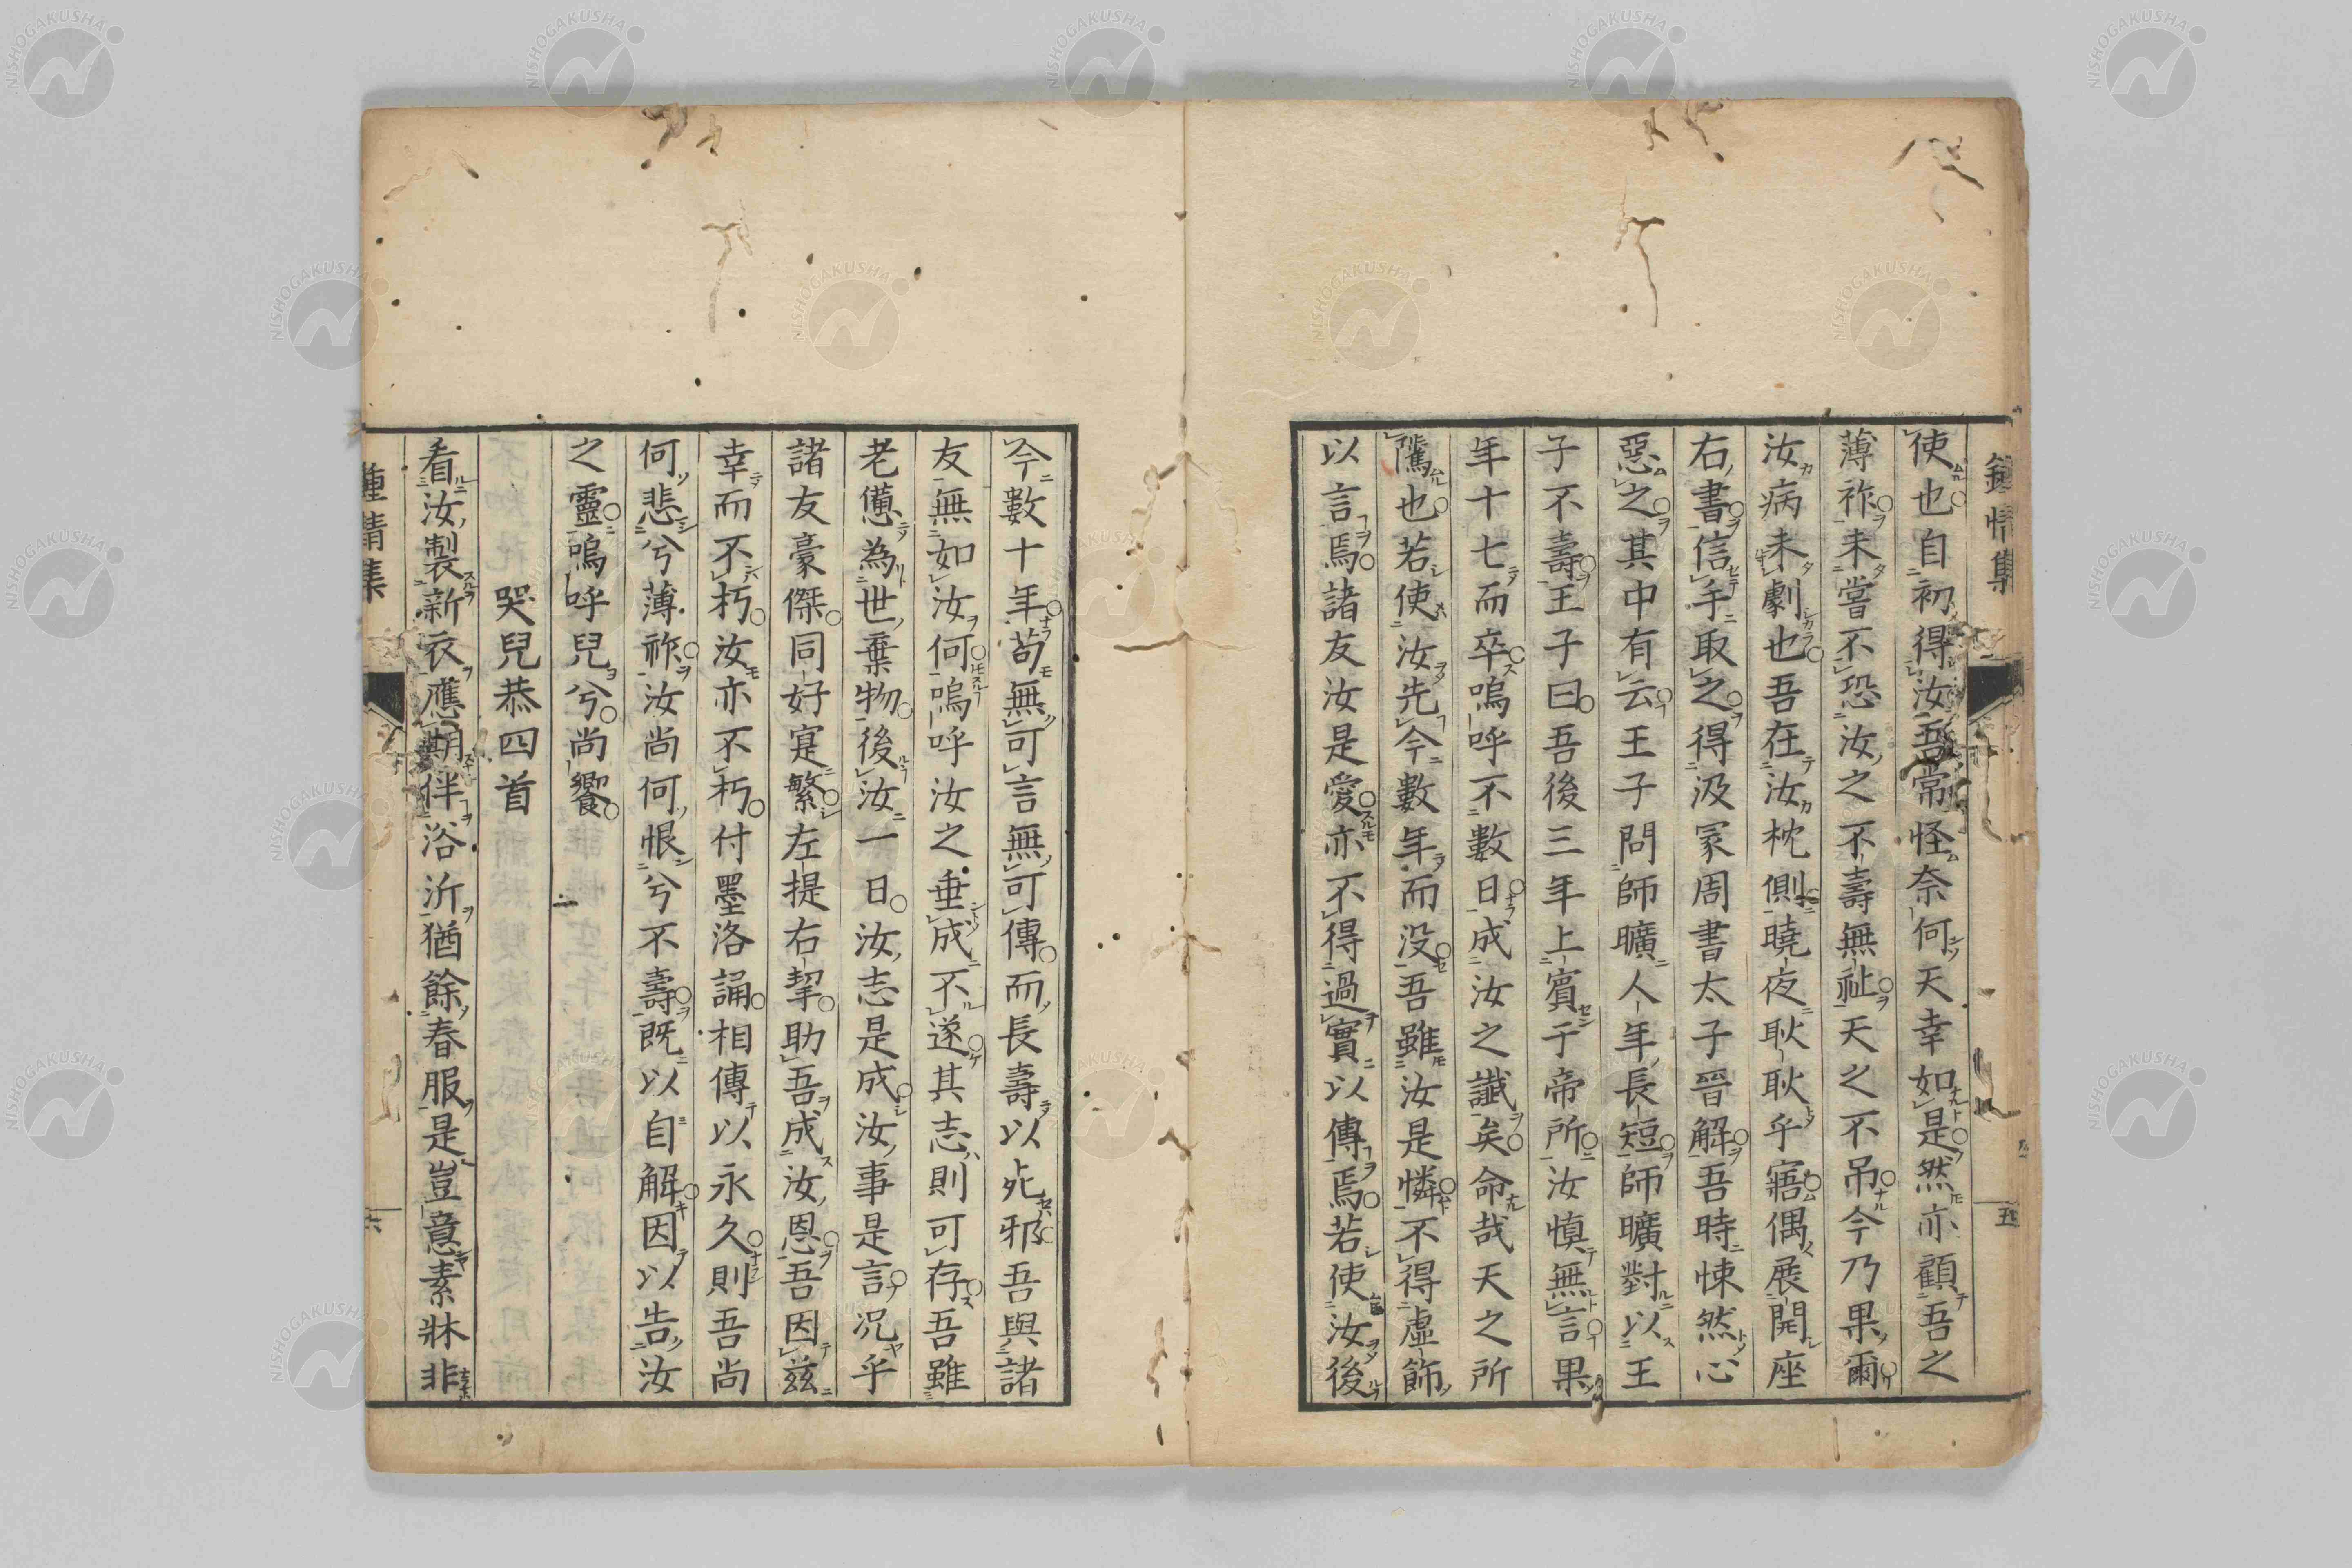 鍾情集
使也自初得汝吾常怪奈何天幸如是然亦顧吾之
薄祚未嘗不恐汝之不壽無祉天之不吊今乃果爾
汝病未劇也吾在汝枕側曉夜耿耿乎寤偶展開座
右書信手取之得汲冢周書太子晉解吾時悚然心
惡之其中有云王子問師曠人年長短師曠對以王
子不壽王子曰吾後三年上賓于帝所汝慎無言果
年十七而卒嗚呼不數日成汝之讖矣命哉天之所
隲也若使汝先今數年而没吾雖汝是憐不得虛飾
以言焉諸友汝是愛亦不得過實以傳焉若使汝後
五
今數十年苟無可言無可傳而長壽以死邪吾與諸
友無如汝何嗚呼汝之垂成不遂其志則可存吾雖
老憊為世棄物後汝一日汝志是成汝事是言况乎
諸友豪傑同好寔繁左提右挈助吾成汝恩吾因茲
幸而不朽汝亦不朽付墨洛誦相傳以永久則吾尚
何悲兮薄祚汝尚何恨兮不壽既以自解因以告汝
之靈嗚呼兒兮尚饗
哭兒恭四首
看汝製新衣應期伴浴沂猶餘春服是豈意素牀非
鍾情集
六
NISHOGAKUSHA